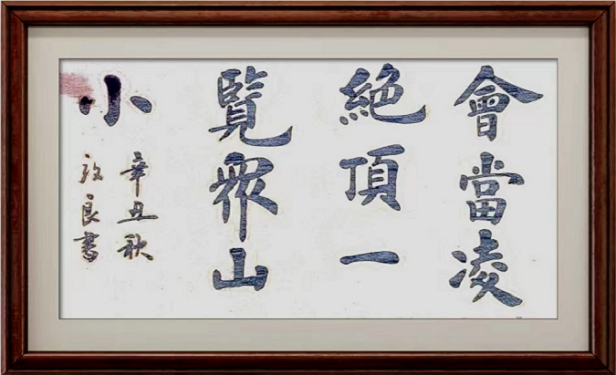 會當凌
絕頂一
覽眾山
小
辛丑秋
放良書